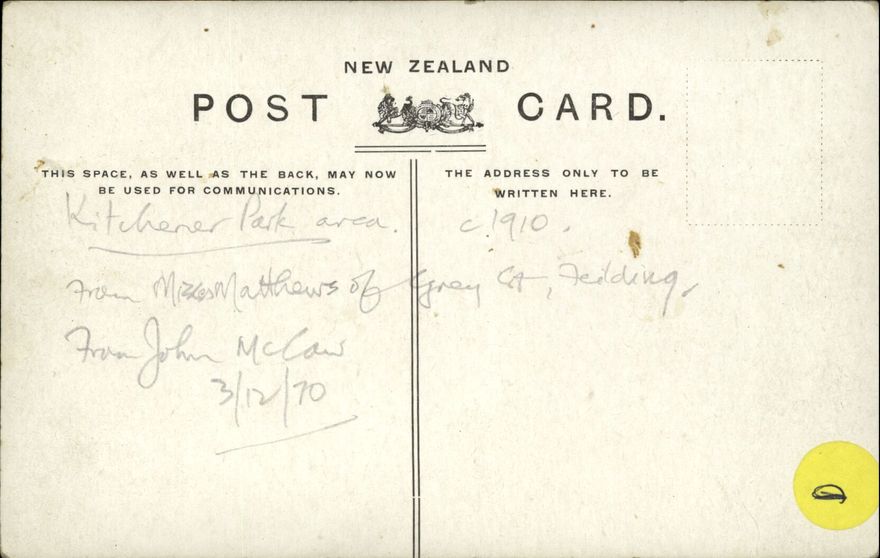 NEW ZEALAND
POST CARD.
THIS SPACE, AS WELL AS THE BACK, MAY NOW
BE USED FOR COMMUNICATIONS.
THE ADDRESS ONLY TO BE
WRITTEN HERE.
Kitchener Park area. c.1910.
From Misses Matthews of Grey St, Feilding.
From John McCaw
3/12/70